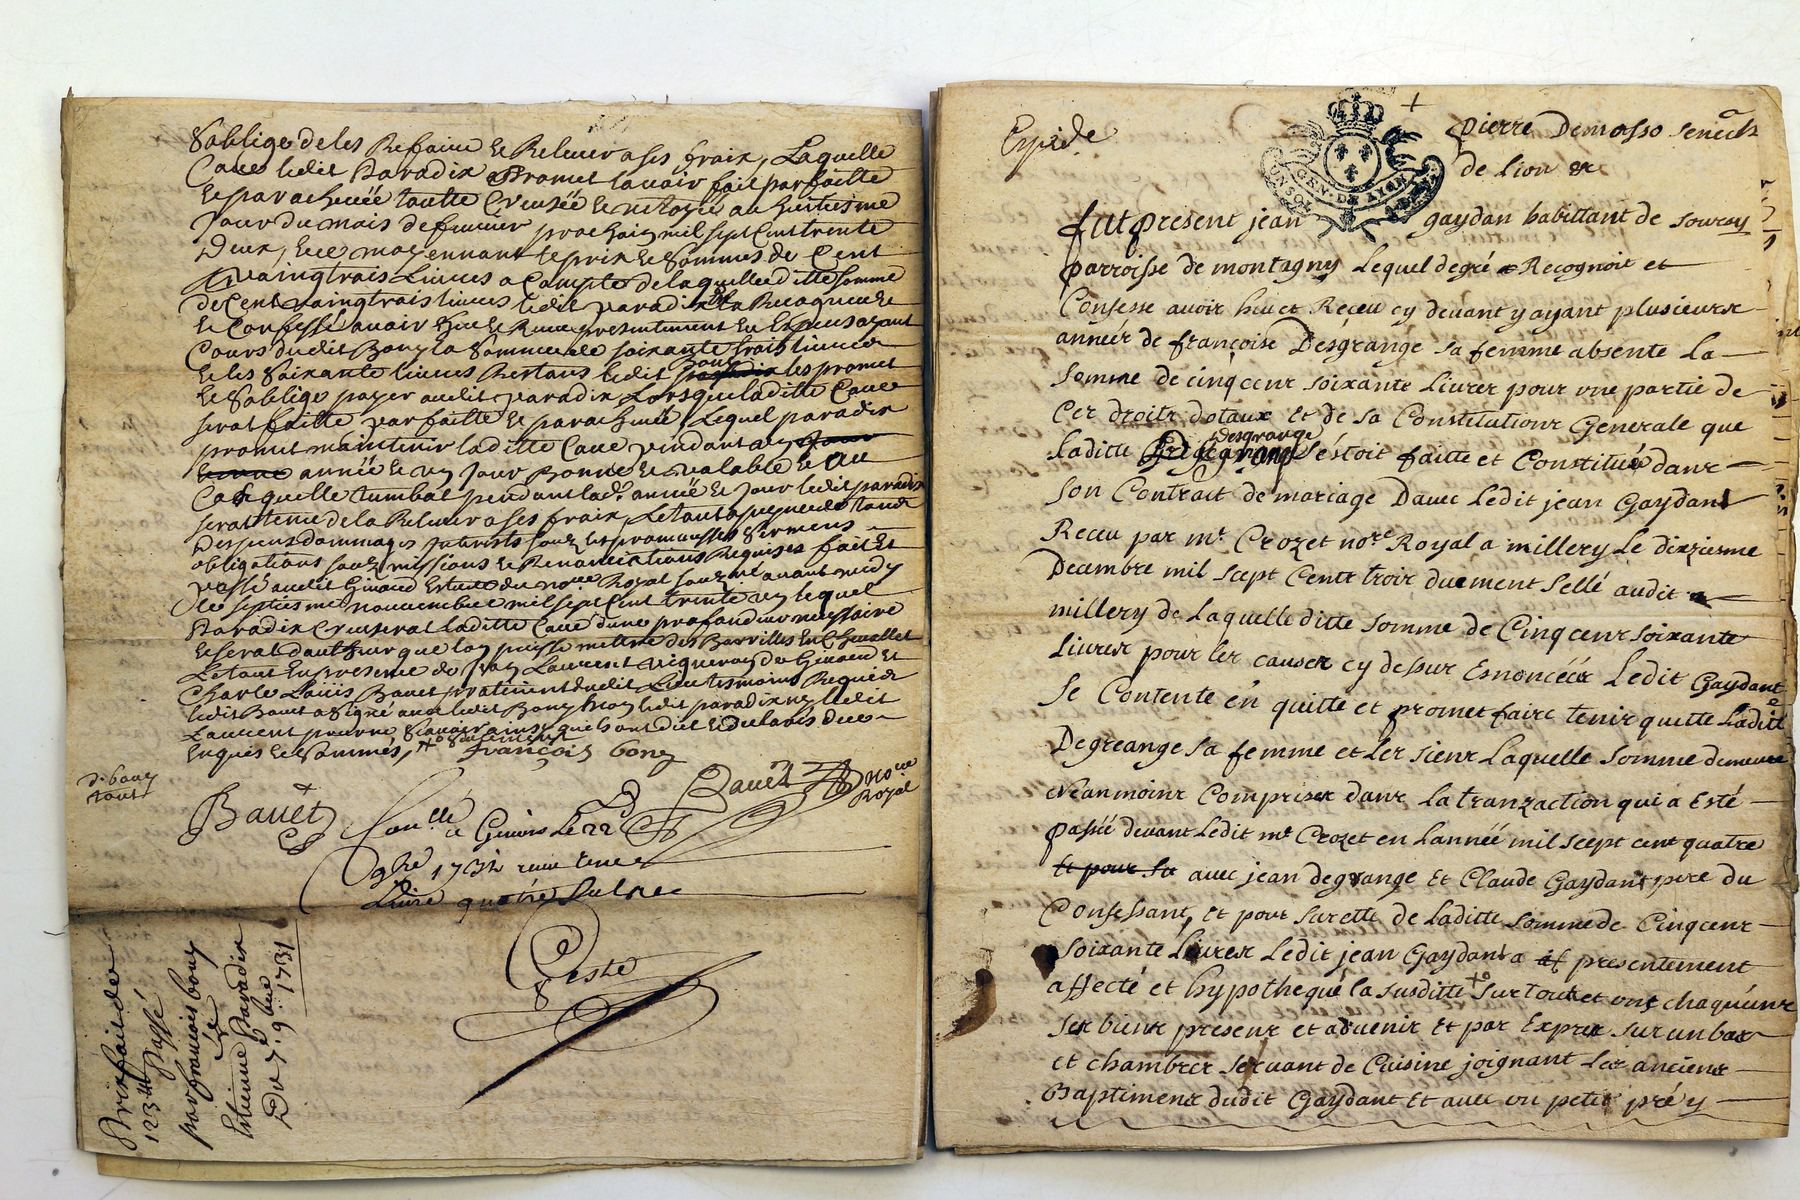 Soblige de les Refaire et Relever a ses fraix, Laquelle
Cave ledit Paradix Promet lavoir fait parfaitte
et parachevée toutte Creusée et netoyée au huitiesme
Jour du mois de fevrier prochain mil sept Cent trente
Deux, et ce moyennant le prix et somme de Cent
vaingtrois Livres a Compte de laquelle ditte somme
de Cent vaingtrois livres ledit paradix
et Confesse avoir heu et Receu presentement en Expeces ayant
Cours dudit Bony la somme de soixante trois livres
et les soixante livres Restans ledit bony les promet
et soblige payer audit paradix Lorsque laditte Cave
serat faitte parfaitte et parachevée, Lequel paradix
promet maintenir laditte Cave pendant un Jour
année et un Jour Bonne et valable et au
Cas quelle tumbat pendant lad. année et Jour ledit paradix
serat tenu de la Relever a ses fraix, Le tout a peyne de tous
Despens dommages Interests sous les promesses sermens
obligations soumissions et Renonciations Requises fait et
passé audit Givord Estude du no.re Royal sous.né avant midy
Le septiesme novembre mil sept Cent trente un lequel
Paradix Creuserat laditte Cave dune profondeur nessaire
et serat dautheur que lon puisse mettre des Barrilles En Chevallet
Le tout En presence de Laurent vigneron de Givord et
Charle Loüis Bavet praticien dudit Lieu tesmoins Requis
ledit Bavet a signé avec ledit Bony non ledit paradix ny ledit
Laurent pour ne sçavoir ainsy quils ont dit et declaré de ce
Enquis et sommés,
françois bony
d. bony
tout
Bavet
Bavet no.re
Royal
Con.llé a Givors Le 22
9bre 1731 receu une
Livre quatre sols
Geste
Prixfait de
123 tt Passé
par francois bony
à
Estienne Paradix
Du 7. 9.bre 1731
Expéde
pierre Demasso senech
de lion &c
GEN. DE LYON
UN SOL
fut present jean gaydan habittant de sourzy
parroisse de montagny Lequel degré Recognoit et
Confesse avoir heu et Receu cy devant y ayant plusieurs
années de françoise Desgrange sa femme absente La
somme de cinqcens soixante Livres pour une partie de
Ces droits dotaux et de sa Constitutions Generale que
laditte desgrange s'éstoit faitte et Constituée dans
son Contrait de mariage Davec Ledit jean Gaydant
Receu par mr Crozet no.re Royal a millery Le dixziesme
Decembre mil scept Cents trois duement sellé audit
millery de Laquelle ditte somme de Cinqcens soixante
Livres pour les causes cy dessus Esnoncéés Ledit Gaydant
se Contente en quitte et promet faire tenir quitte Ladite
Degreange sa femme et les siens Laquelle somme demeure
neanmoins Comprise dans la tranzaction qui a Esté
passée devant Ledit mr Crozet en Lannéé mil scept cent quatre
et pour sa avec jean degrange Et Claude Gaydant pere du
Confessant, et pour surette de laditte somme de Cinqcens
soixante Livres Ledit jean Gaydant a presentement
affecté et hypothequé la susditte sur tout et uns chaquuns
ses biens presens et advenir Et par Exprex sur un bas
et chambres servant de Cuisine joignant Les anciens
Baptimens dudit Gaydant Et avec un petit pré y